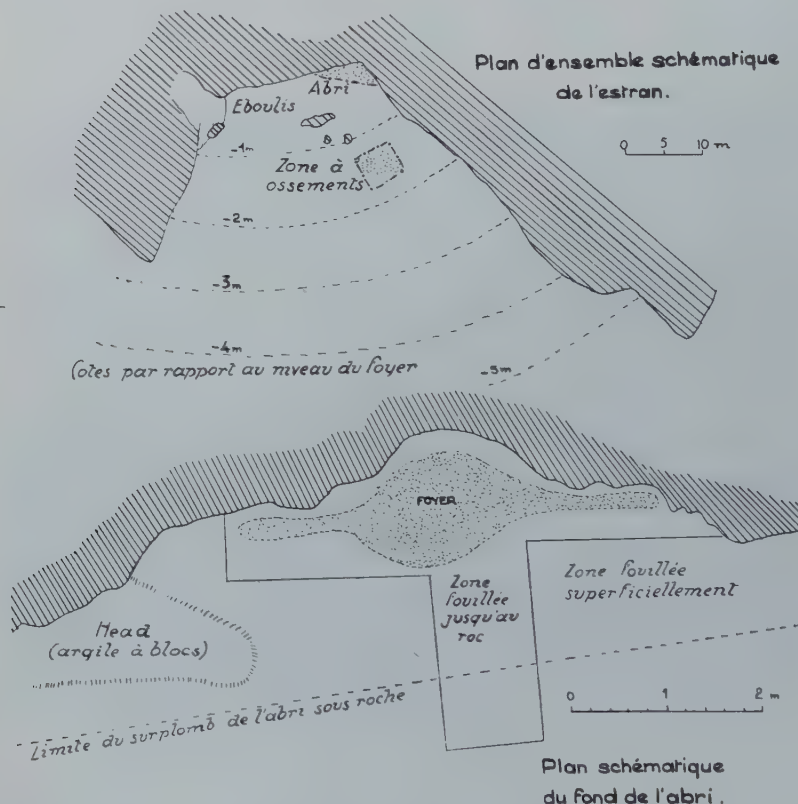 Plan d'ensemble schématique
de l'estran.
Abri
Eboulis
0 5 10 m
-1m
Zone à
ossements
-2m
-3m
-4m
-5m
Cotes par rapport au niveau du foyer
FOYER
Zone
fouillée
jusqu'au
roc
Zone fouillée
superficiellement
Head
(argile à blocs)
0 1 2 m
Limite du surplomb de l'abri sous roche
Plan schématique
du fond de l'abri.